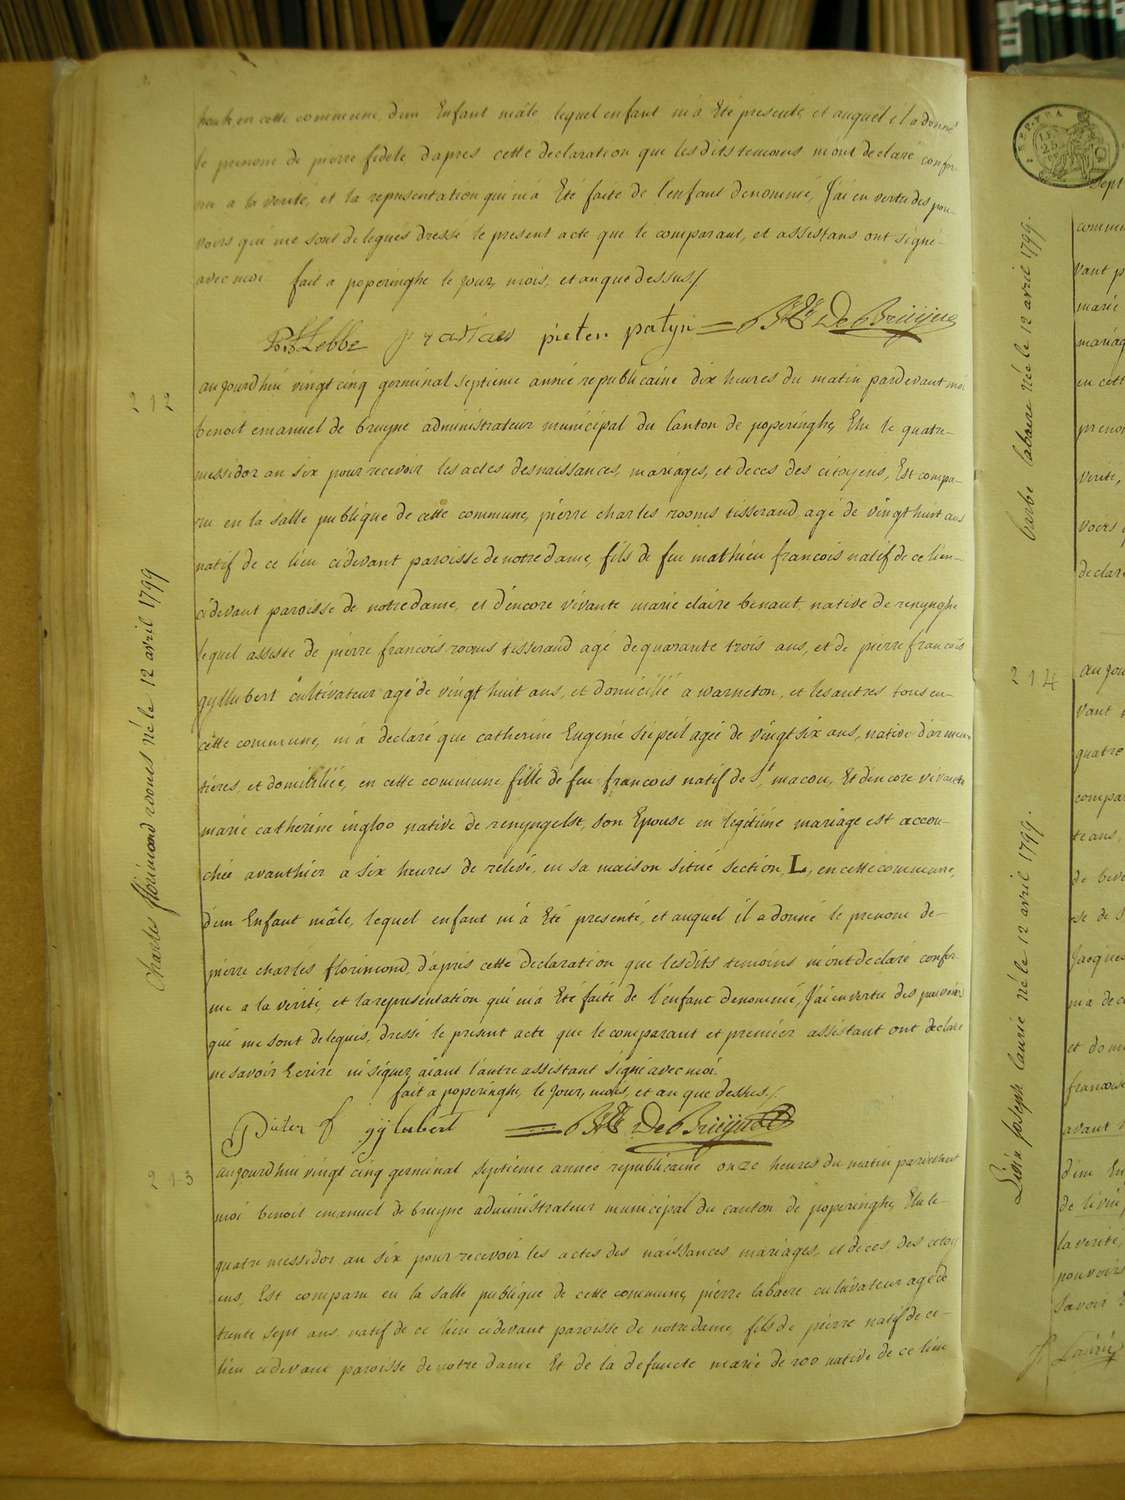 en cette commune, d'un Enfant mâle lequel enfant m'a Eté presenté, et auquel il a donné
le prenome de pierre fidele d'apres cette declaration que les dits temoins m'ont declaré confor-
me a la verité, et la representation qui m'a Eté faite de l'enfans denommé, J'ai en vertu des pou-
voirs qui me sont delegues dressé le present acte que le comparant, et assistans ont signé
avec moi fait a poperinghe le jour, mois, et an que dessus/
Lebbe pieter patijn De Bruijne
212
aujourdhui vingt cinq germinal septieme année republicaine dix heures du matin pardevant moi
benoit emanuel de bruyne administrateur municipal du Canton de poperinghe, Elu le quatre
messidor an six pour recevoir les actes desnaissances, mariages, et deces des citoyens, Est compa-
ru en la salle publique de cette commune, pierre charles rooms tisserand agé de vingt huit ans
natif de ce lieu cidevant paroisse de notre dame, fils de feu mathieu francois natif de ce lieu
cidevant paroisse de notre dame, et d'encore vivante marie claire benaut native de renynghe
lequel assisté de pierre francois rooms tisserand agé de quarante trois ans, et de pierre francois
gyllubert cultivateur agé de vingt huit ans, et domicilié a warneton, et les autres tous en
cette commune, m'a declaré que catherine Eugenie agée de vingt six ans, native d'armen-
tieres, et domiciliée, en cette commune fille de feu francois natif de St. macou, Et d'encore vivante
marie catherine ingloo native de renyngelst, son Epouse en legitime mariage est accou-
chée avanthier a six heures de relivé, en sa maison situé section, L, en cette commune,
d'un Enfant mâle, lequel enfant m'a Eté presenté, et auquel il a donné le prenome de
pierre charles florimond, d'apres cette declaration que lesdits temoins m'ont declaré confor-
me a la verité, et la representation qui m'a Eté faite de l'enfant denommé, J'ai en vertu des pouvoirs
qui me sont delegués, dressé le present acte que le comparant et premier assistant ont declaré
ne savoir Ecrire ni signer, aiant l'autre assistant signé avec moi.
fait a poperinghe, le jour, mois, et an que dessus/.
Pieter f gijlubert De Bruijne
213
aujourdhui vingt cinq germinal septieme année republicaine onze heures du matin pardevant
moi benoit emanuel de bruyne administrateur municipal du canton de poperinghe, Elu le
quatre messidor an six pour recevoir les actes des naissances mariages, et deces des citoy
ens, Est comparu en la salle publique de cette commune, pierre labaere cultivateur agé de
trente sept ans natif de ce lieu cidevant paroisse de notre dame, fils de pierre natif de ce
lieu cidevant paroisse de notre dame Et de la defuncte marie de roo native de ce lieu
charles florimond rooms né le 12 avril 1799
barbe labaere née le 12 avril 1799.
Livin joseph laurie né le 12 avril 1799.
Sept
commu
vant p
marié
mariag
en cett
prenom
verité,
voirs
declaré
214
aujou
vant
quatre
compar
te ans,
de
se de
jacques
m'a dec
et dom
francoise
avant
d'un En
de livin
la verité,
pouvoirs
savoir
Laurie